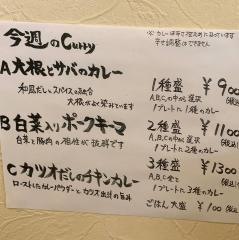 今週のCurry
※カレーは辛さ控えめになっています
辛さ調整はできません
A 大根とサバのカレー
和風だしとスパイスの融合
大根がよく染みています
B 白菜入りポークキーマ
白菜と豚肉の相性が抜群です
C カツオだしのチキンカレー
ローストしたカレーパウダーとカツオ出汁の旨み
1種盛 ¥900
A,B,Cの中から選択
1プレートに1種のカレー
2種盛 ¥1100
A,B,Cの中から選択
1プレートに2種のカレー
3種盛 ¥1300
A,B,C全て
1プレートに3種のカレー
ごはん大盛 ¥100 (税込)